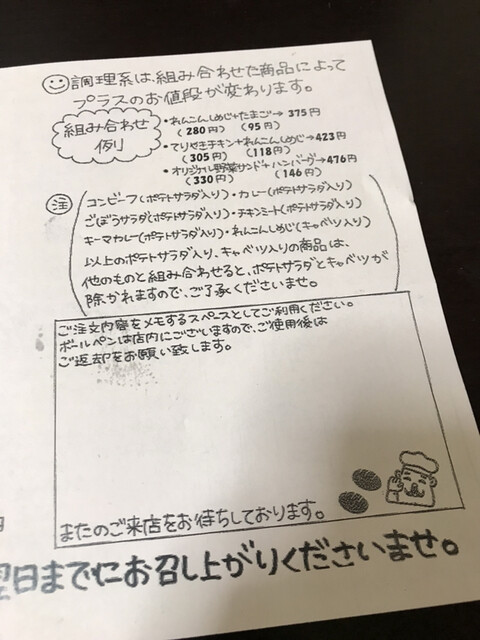 調理系は、組み合わせた商品によって
プラスのお値段が変わります。
組み合わせ
例
・れんこんしめじ+たまご→ 375円
(280円) (95円)
・てりやきチキン+れんこんしめじ→423円
(305円) (118円)
・オリジナル野菜サンド+ハンバーグ→476円
(330円) (146円)
注
コンビーフ(ポテトサラダ入り)・カレー(ポテトサラダ入り)
ごぼうサラダ(ポテトサラダ入り)・チキンミート(ポテトサラダ入り)
キーマカレー(ポテトサラダ入り)・れんこんしめじ(キャベツ入り)
以上のポテトサラダ入り、キャベツ入りの商品は、
他のものと組み合わせると、ポテトサラダとキャベツが
除かれますので、ご了承くださいませ。
ご注文内容をメモするスペースとしてご利用ください。
ボールペンは店内にございますので、ご使用後は
ご返却をお願い致します。
またのご来店をお待ちしております。
円
翌日までにお召し上がりくださいませ。